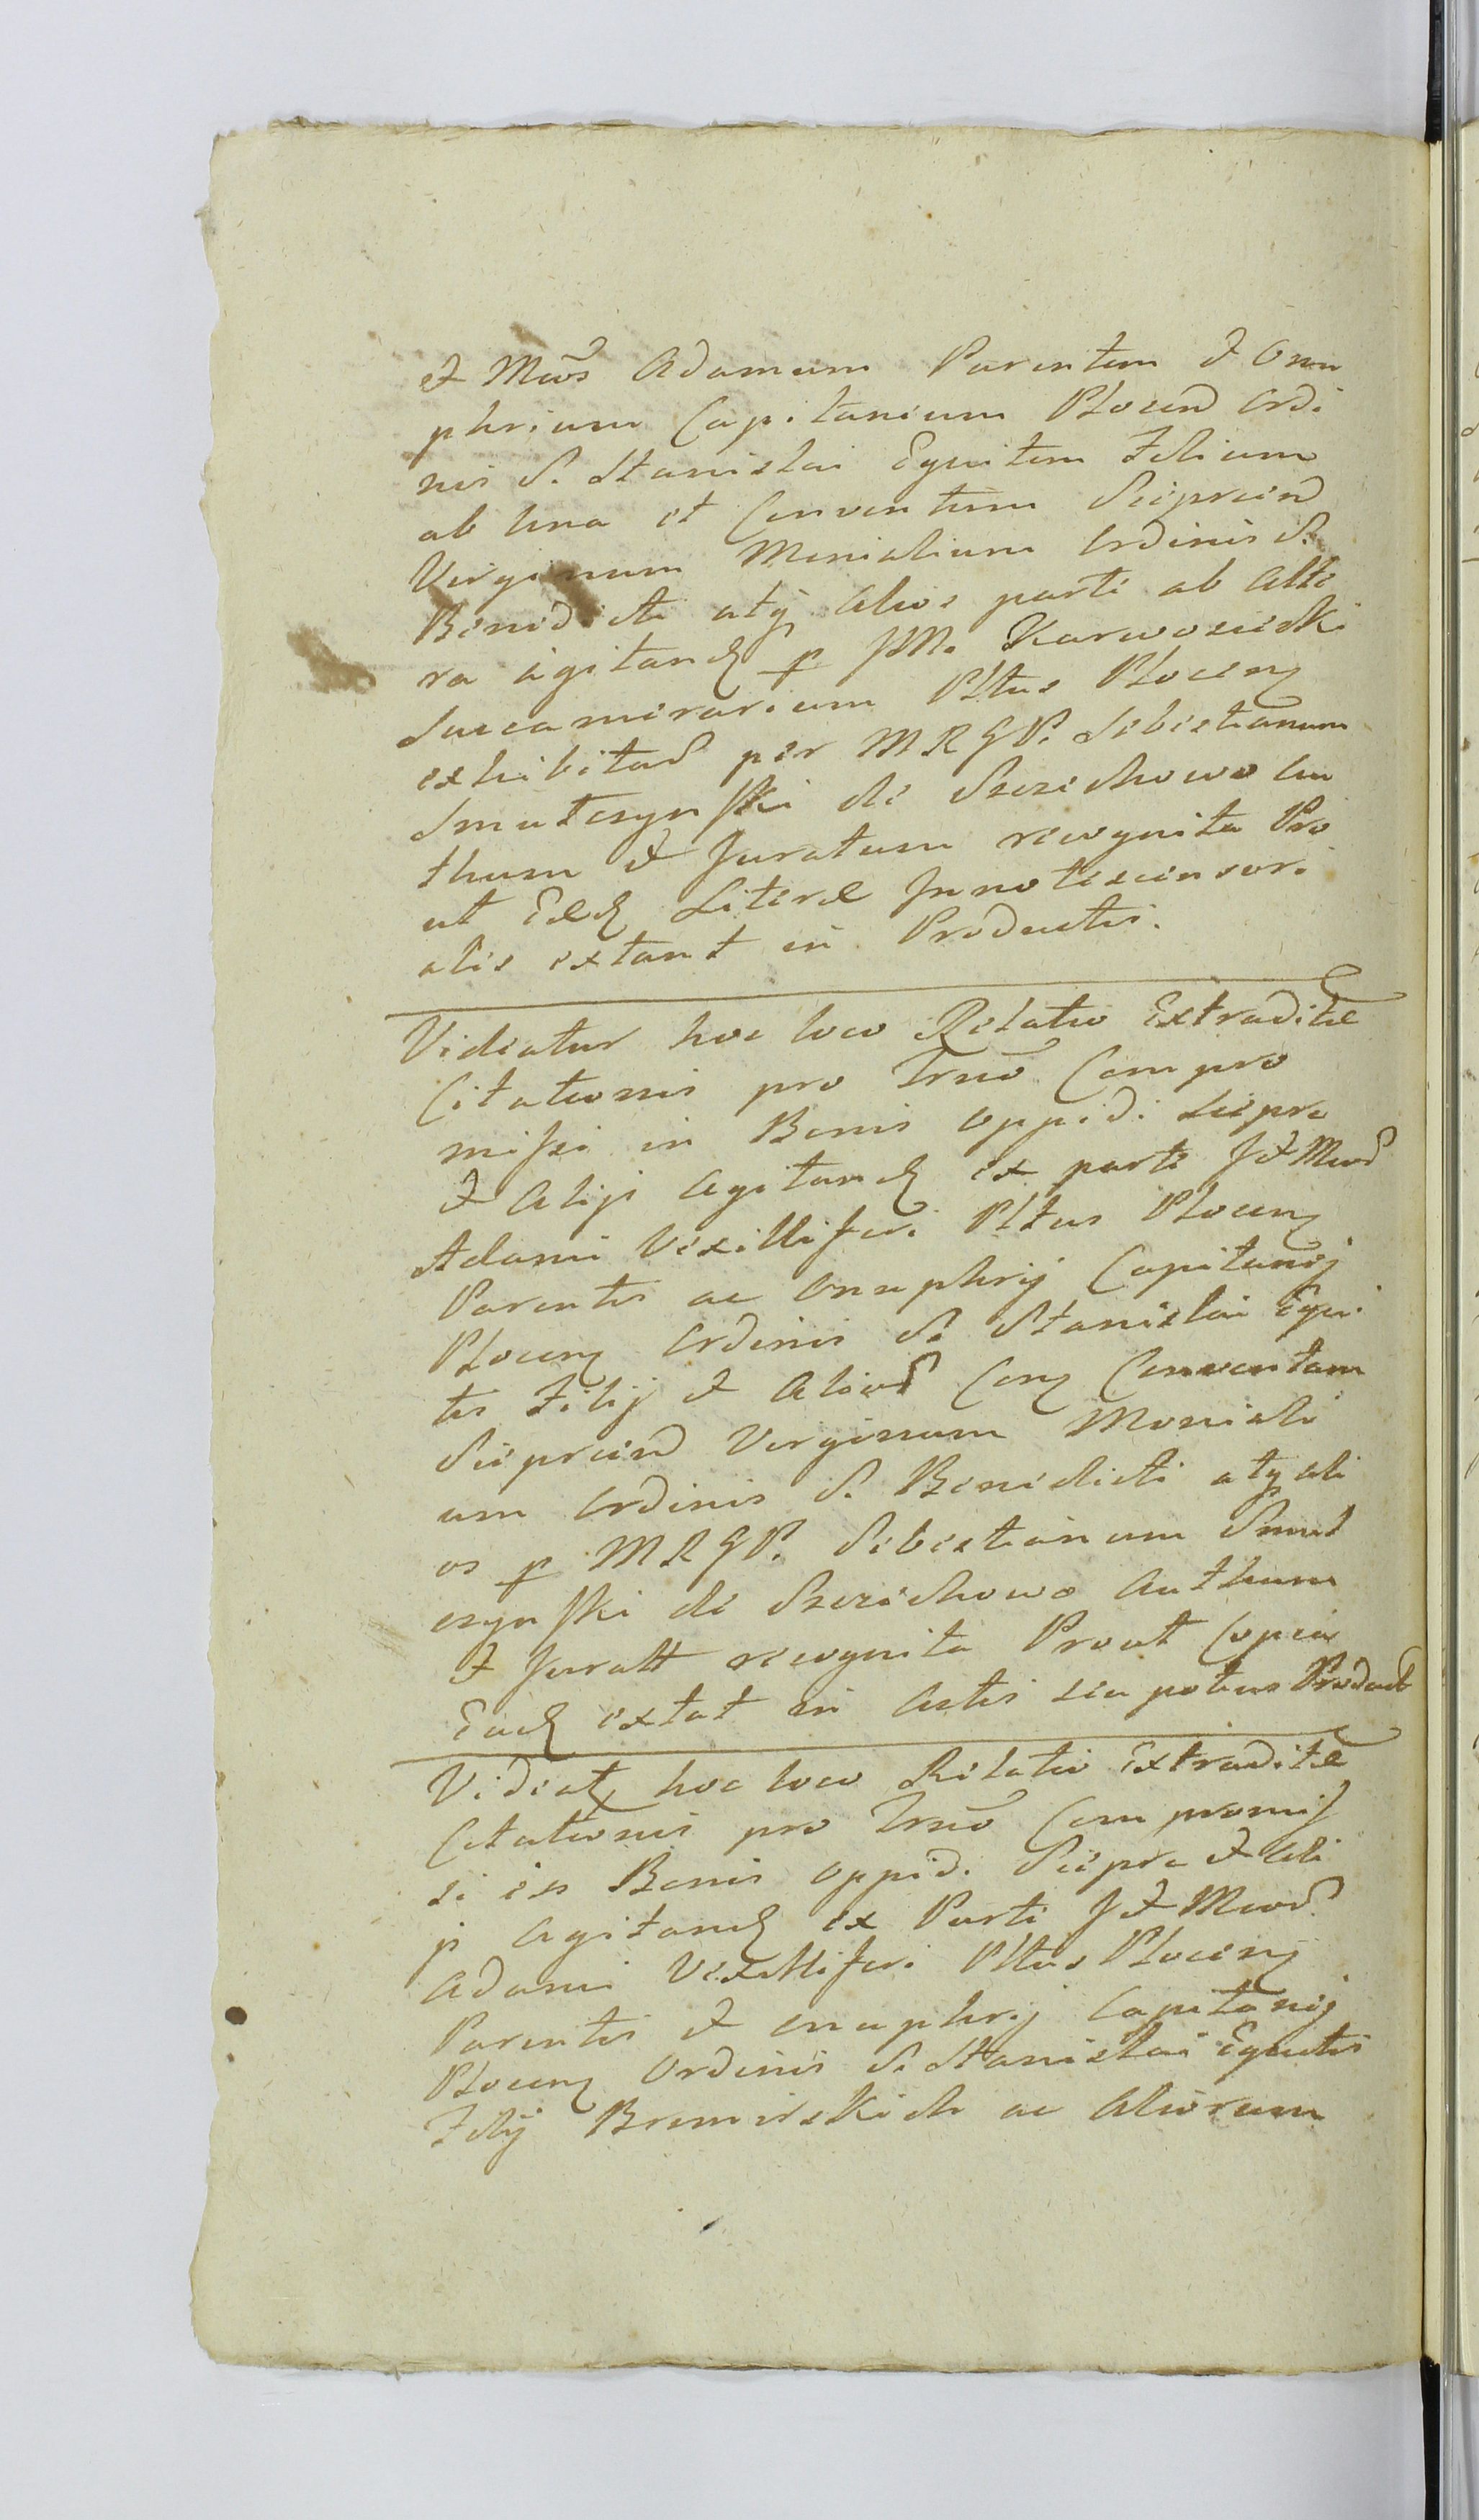 et Mcos Adamum Parentem et Onu
phrium Capitaneum Plocen Ordi
nis S. Stanislai Equitem Filium
ab una et Conventum Sieprcen
Virginum Monialium Ordinis S.
Benedicti atq Alios parte ab Alte
ra agitand p JM. Karwosiecki
Succamerarium Pltus Plocen
exhibitas per MRGP. Sebestianum
Smutczynski de Szczechowo Au
thum et Juratum recognita Pro
ut Eæd Literæ Innotescensori
ales extant in Productis.
Videatur hoc loco Relatio Extraditæ
Citationis pro Trno Compro
missi in Bonis Oppidi Sieprc
et Alijs Agitand ex parte J et Mcor
Adami Vexilliferi Pltus Plocen
Parentis ac Onuphrij Capitanej
Plocen Ordinis S. Stanislai Equi
tis Filij et Alior Con Conventum
Sieprcen Virginum Moniali
um Ordinis S. Benedicti atq ali
os p MRGP. Sebestianum Smut
czynski de Szczechowo Authum
et Juratt recognita Prout Copia
Ead extat in Actis seu potius Product
Videat hoc loco Relatio Extraditæ
Citationis pro Trno Compromis
si in Bonis Oppid. Sieprc et Ali
js Agitand ex Parte J et Mcor
Adami Vexilliferi Pltus Plocen
Parentis et Onuphrij Capitanej
Plocen Ordinis S. Stanislai Equitis
Filij ac Aliorum